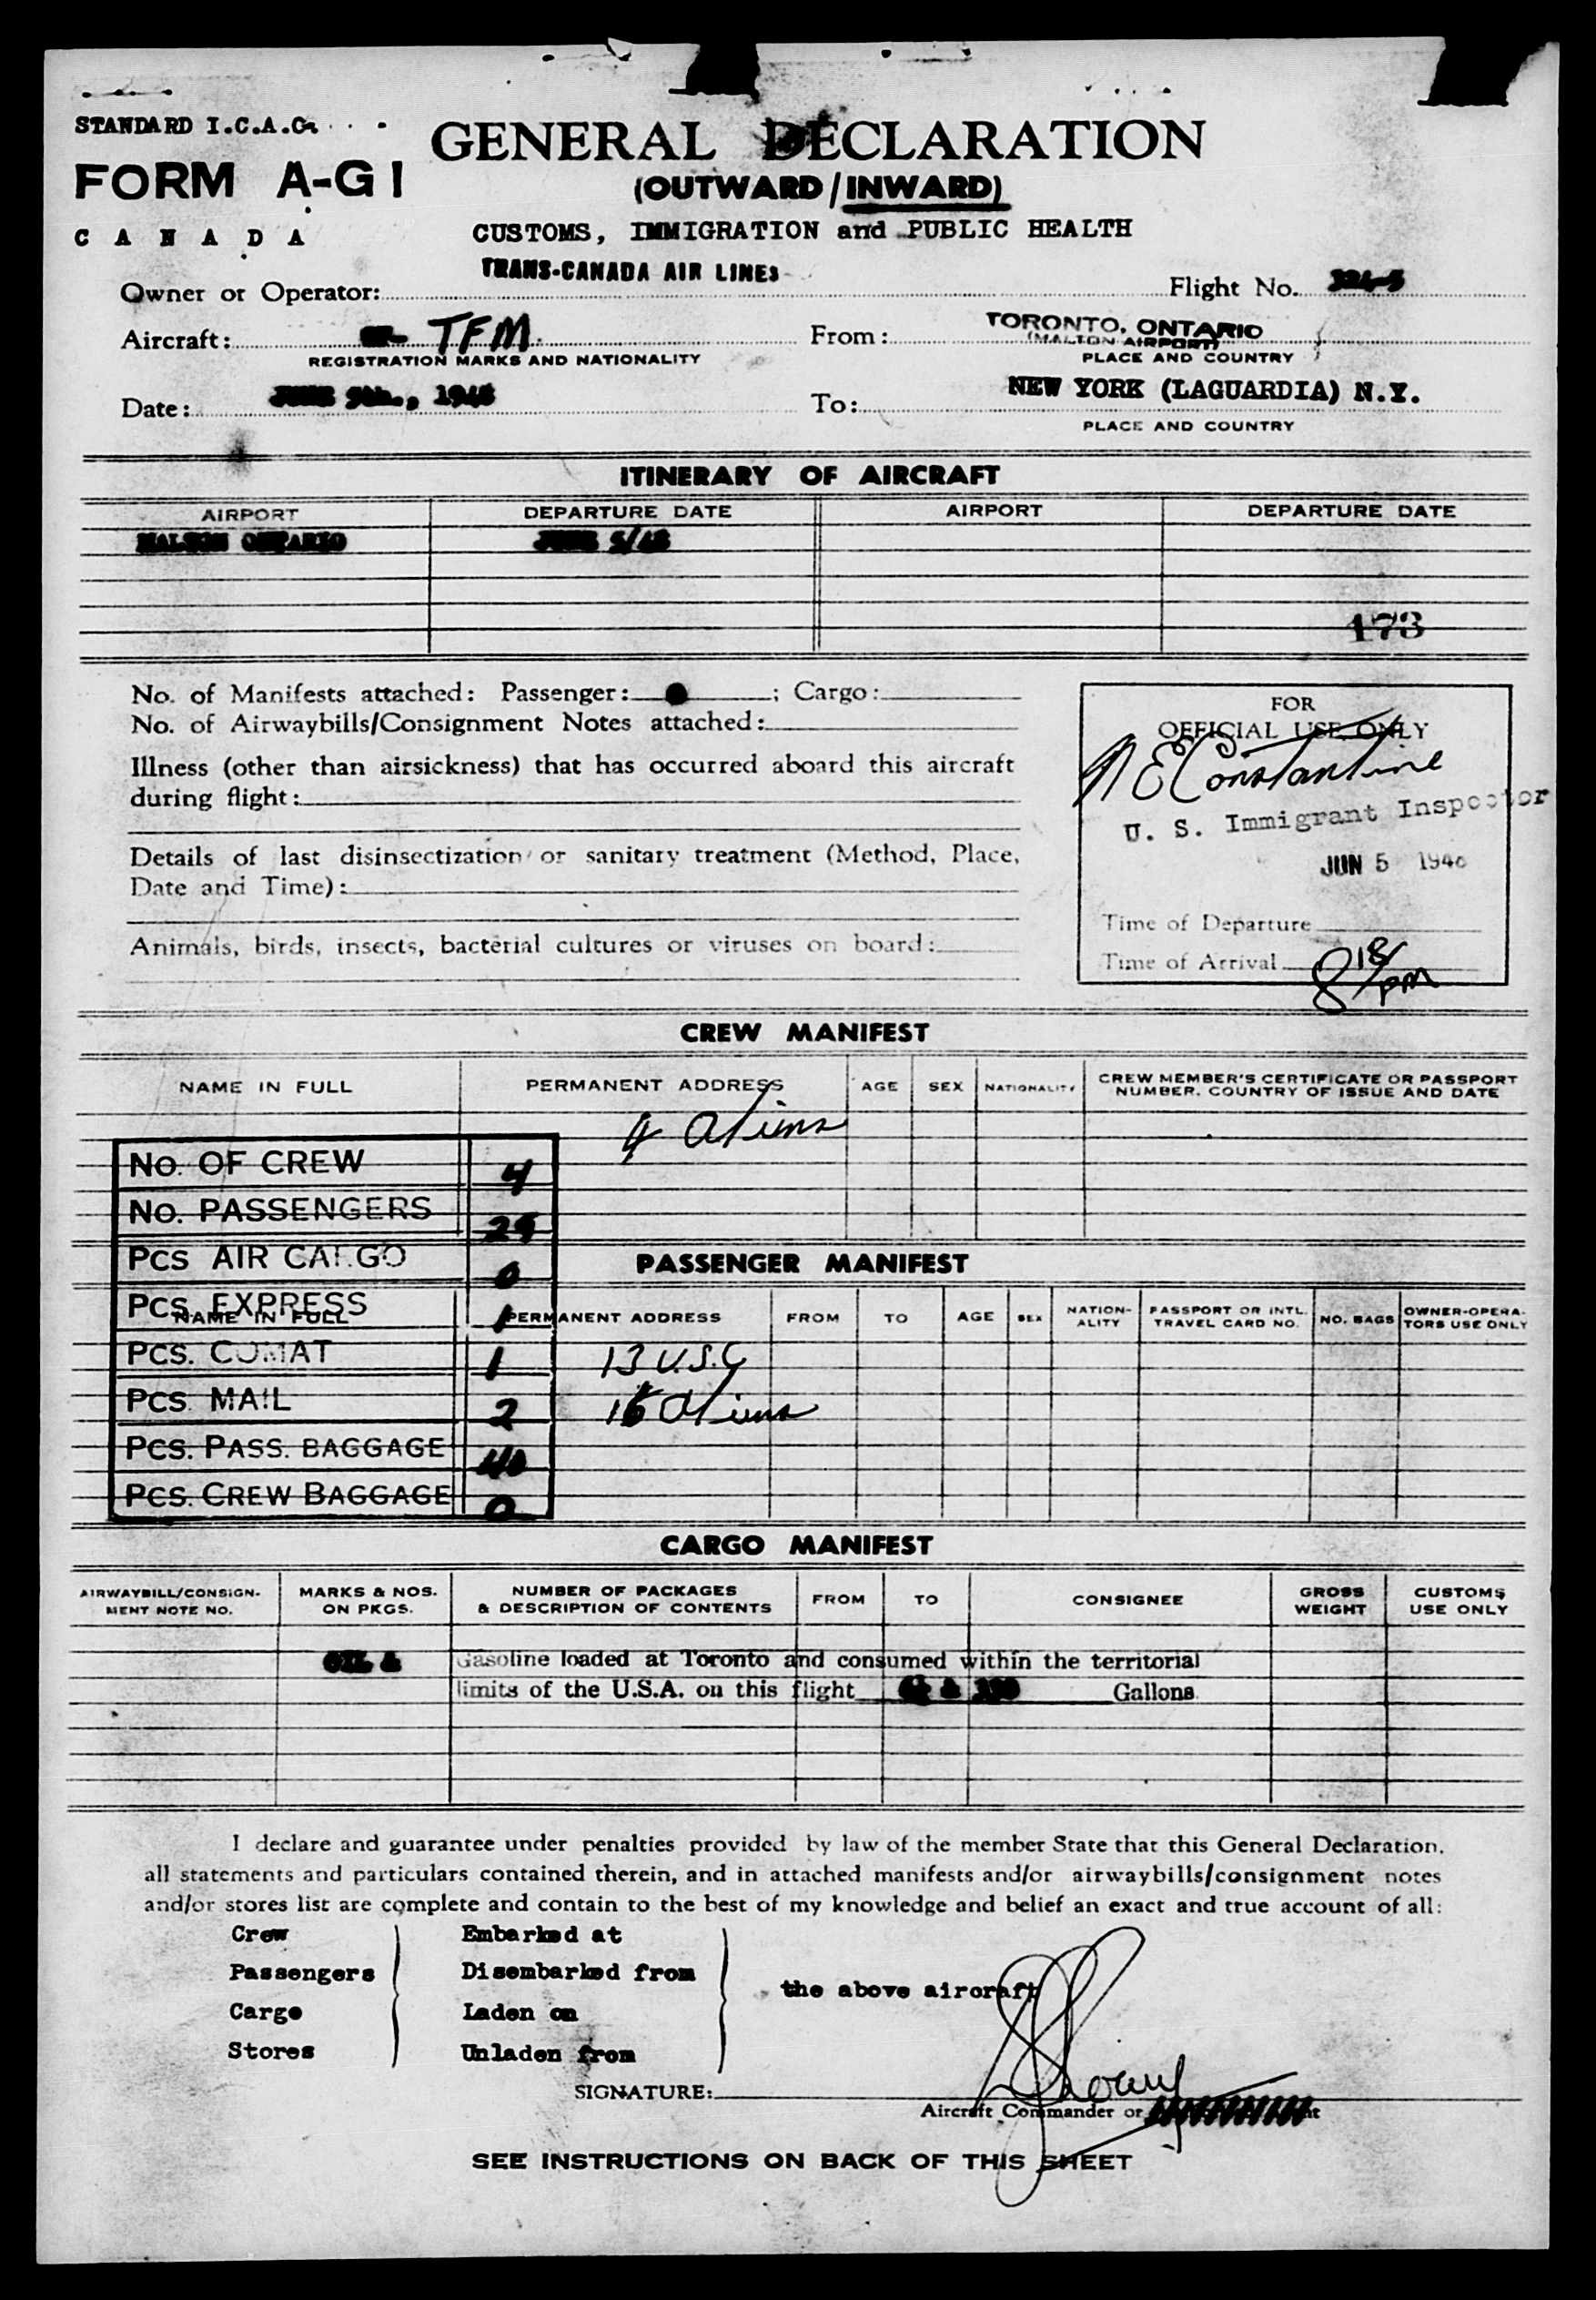 STANDARD I.C.A.O.
GENERAL DECLARATION
FORM A-G1
(OUTWARD/INWARD)
CANADA
CUSTOMS, IMMIGRATION and PUBLIC HEALTH
TRANS-CANADA AIR LINES
Owner or Operator:
Flight No.
Aircraft: TFM
From: TORONTO, ONTARIO
(MALTON AIRPORT)
REGISTRATION MARKS AND NATIONALITY
PLACE AND COUNTRY
Date: 1948
To: NEW YORK (LAGUARDIA) N.Y.
PLACE AND COUNTRY
ITINERARY OF AIRCRAFT
AIRPORT DEPARTURE DATE AIRPORT DEPARTURE DATE
MALTON ONTARIO JUNE 5/48
173
No. of Manifests attached: Passenger: ; Cargo:
No. of Airwaybills/Consignment Notes attached:
Illness (other than airsickness) that has occurred aboard this aircraft
during flight:
Details of last disinsectization or sanitary treatment (Method, Place,
Date and Time):
Animals, birds, insects, bacterial cultures or viruses on board:
FOR
OFFICIAL USE ONLY
N E Constantine
U. S. Immigrant Inspector
JUN 5 1948
Time of Departure
Time of Arrival 8 18/PM
CREW MANIFEST
NAME IN FULL PERMANENT ADDRESS AGE SEX NATIONALITY CREW MEMBER'S CERTIFICATE OR PASSPORT
NUMBER, COUNTRY OF ISSUE AND DATE
4 aliens
No. OF CREW 4
No. PASSENGERS
Pcs AIR CARGO 0
Pcs. EXPRESS 1
Pcs. COMAT 1
Pcs. MAIL 2
Pcs. PASS. BAGGAGE 40
Pcs. CREW BAGGAGE 0
PASSENGER MANIFEST
NAME IN FULL PERMANENT ADDRESS FROM TO AGE SEX NATION-
ALITY PASSPORT OR INTL.
TRAVEL CARD NO. NO. BAGS OWNER-OPERA-
TORS USE ONLY
13 U.S.C
16 aliens
CARGO MANIFEST
AIRWAYBILL/CONSIGN-
MENT NOTE NO. MARKS & NOS.
ON PKGS. NUMBER OF PACKAGES
& DESCRIPTION OF CONTENTS FROM TO CONSIGNEE GROSS
WEIGHT CUSTOMS
USE ONLY
OIL & Gasoline loaded at Toronto and consumed within the territorial
limits of the U.S.A. on this flight Gallons
I declare and guarantee under penalties provided by law of the member State that this General Declaration,
all statements and particulars contained therein, and in attached manifests and/or airwaybills/consignment notes
and/or stores list are complete and contain to the best of my knowledge and belief an exact and true account of all:
Crew Embarked at
Passengers Disembarked from
the above aircraft
Cargo Laden on
Stores Unladen from
SIGNATURE:
Aircraft Commander or
SEE INSTRUCTIONS ON BACK OF THIS SHEET